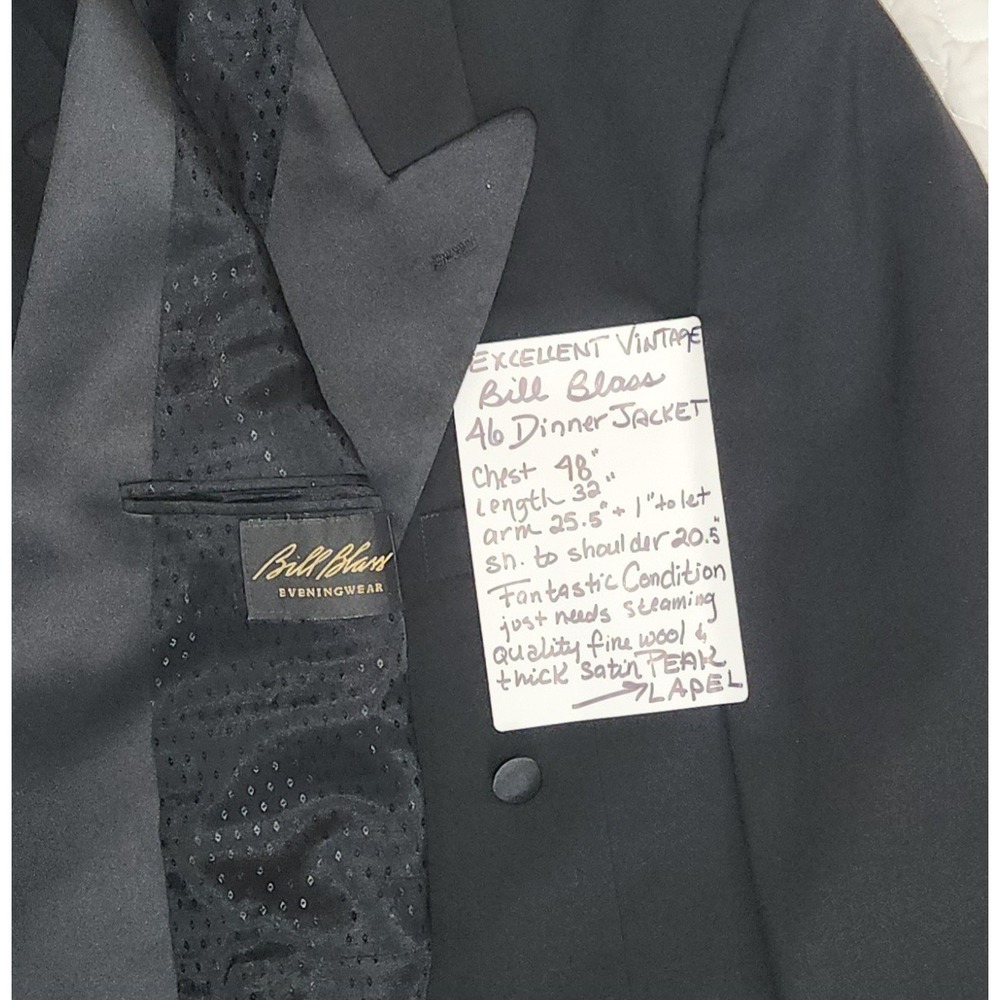 EXCELLENT VINTAGE
Bill Blass
46 Dinner JACKET
Chest 48"
Length 32"
arm 25.5" + 1" to let
sh. to shoulder 20.5"
Fantastic Condition
just needs steaming
quality fine wool &
thick satin PEAK
→ LAPEL
Bill Blass
EVENINGWEAR